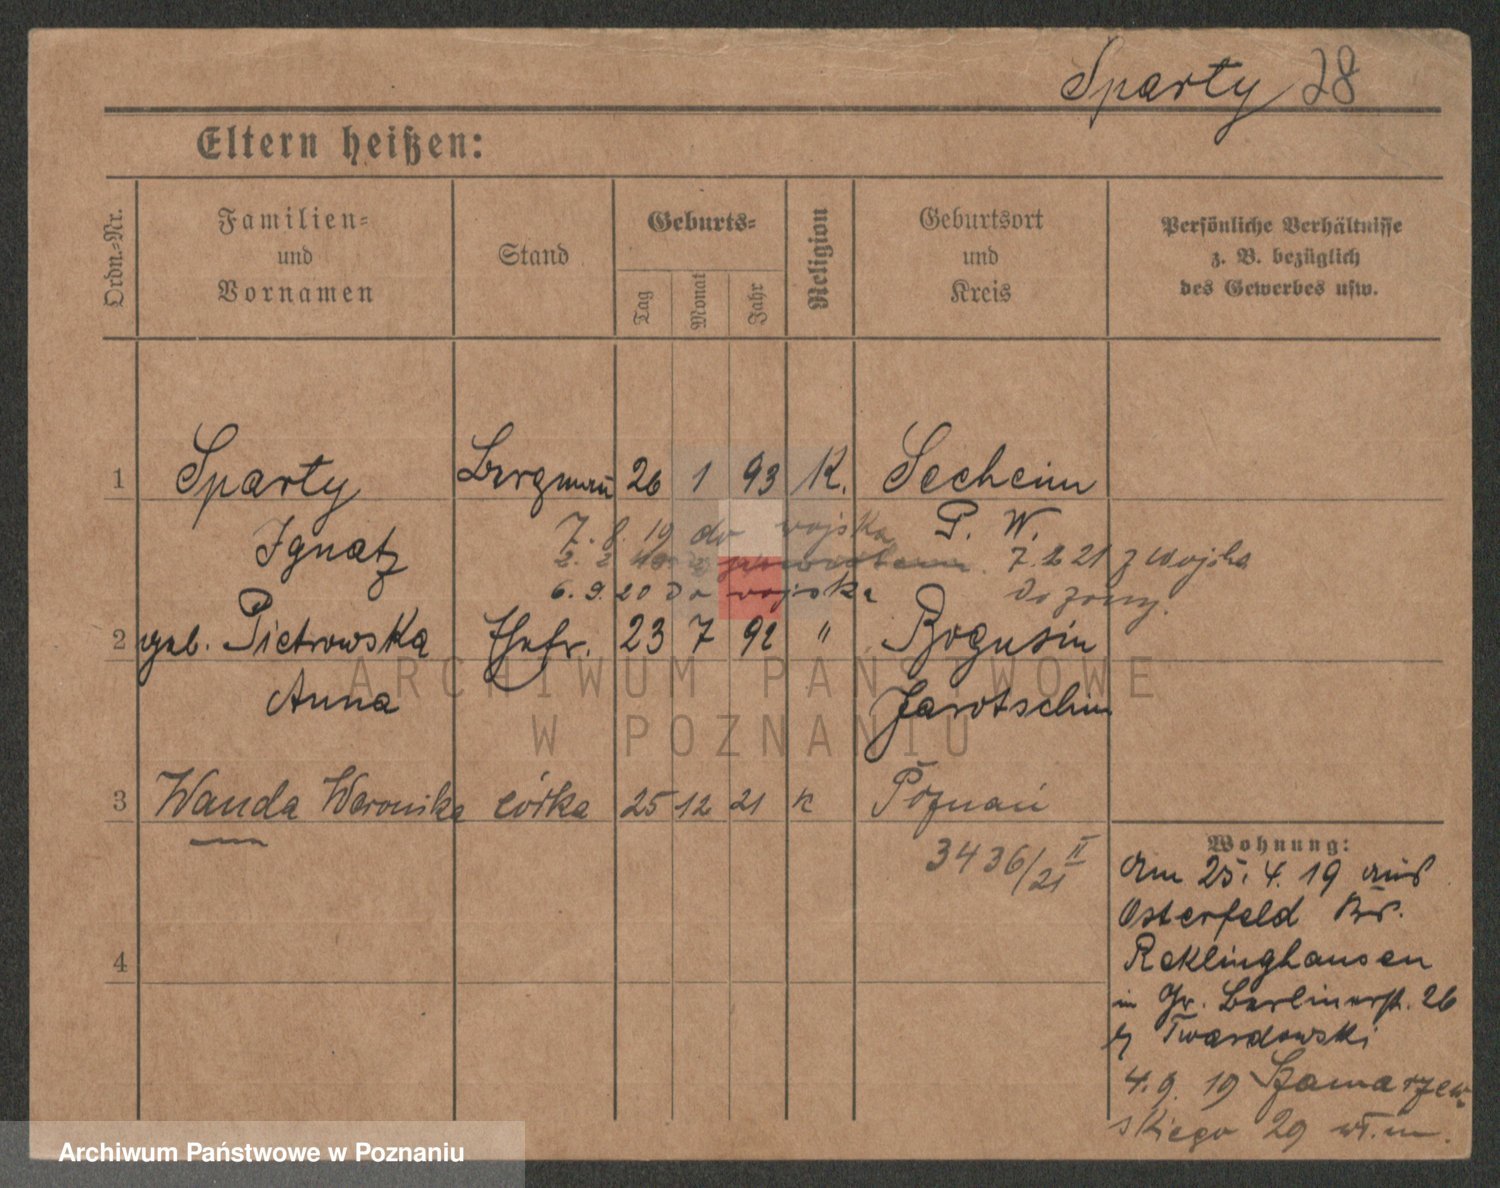 Sparty 28
Eltern heißen:
Ordn.-Nr.
Familien- und Vornamen
Stand
Geburts-
Tag
Monat
Jahr
Religion
Geburtsort und Kreis
Persönliche Verhältnisse z. B. bezüglich des Gewerbes usw.
1 Sparty Bergmann 26 1 93 K. Seeheim
Ignatz P. W.
7. 8. 19 do wojska
7. 2 21 z wojska
6. 9. 20 do wojska
do żony.
2 geb. Pietrowska Ehefr. 23 7 92 " Bogusin
Anna Jarotschin
3 Wanda Weronika córka 25 12 21 K Poznań
3436/21 II
4
Wohnung:
Am 25. 4. 19 aus
Osterfeld Krs.
Reklinghausen
in Gr. Berlinerst. 26
Twardowski
4. 9. 19 Szamarzew-
skiego 29 wł. m.
ARCHIWUM PAŃSTWOWE
W POZNANIU
Archiwum Państwowe w Poznaniu